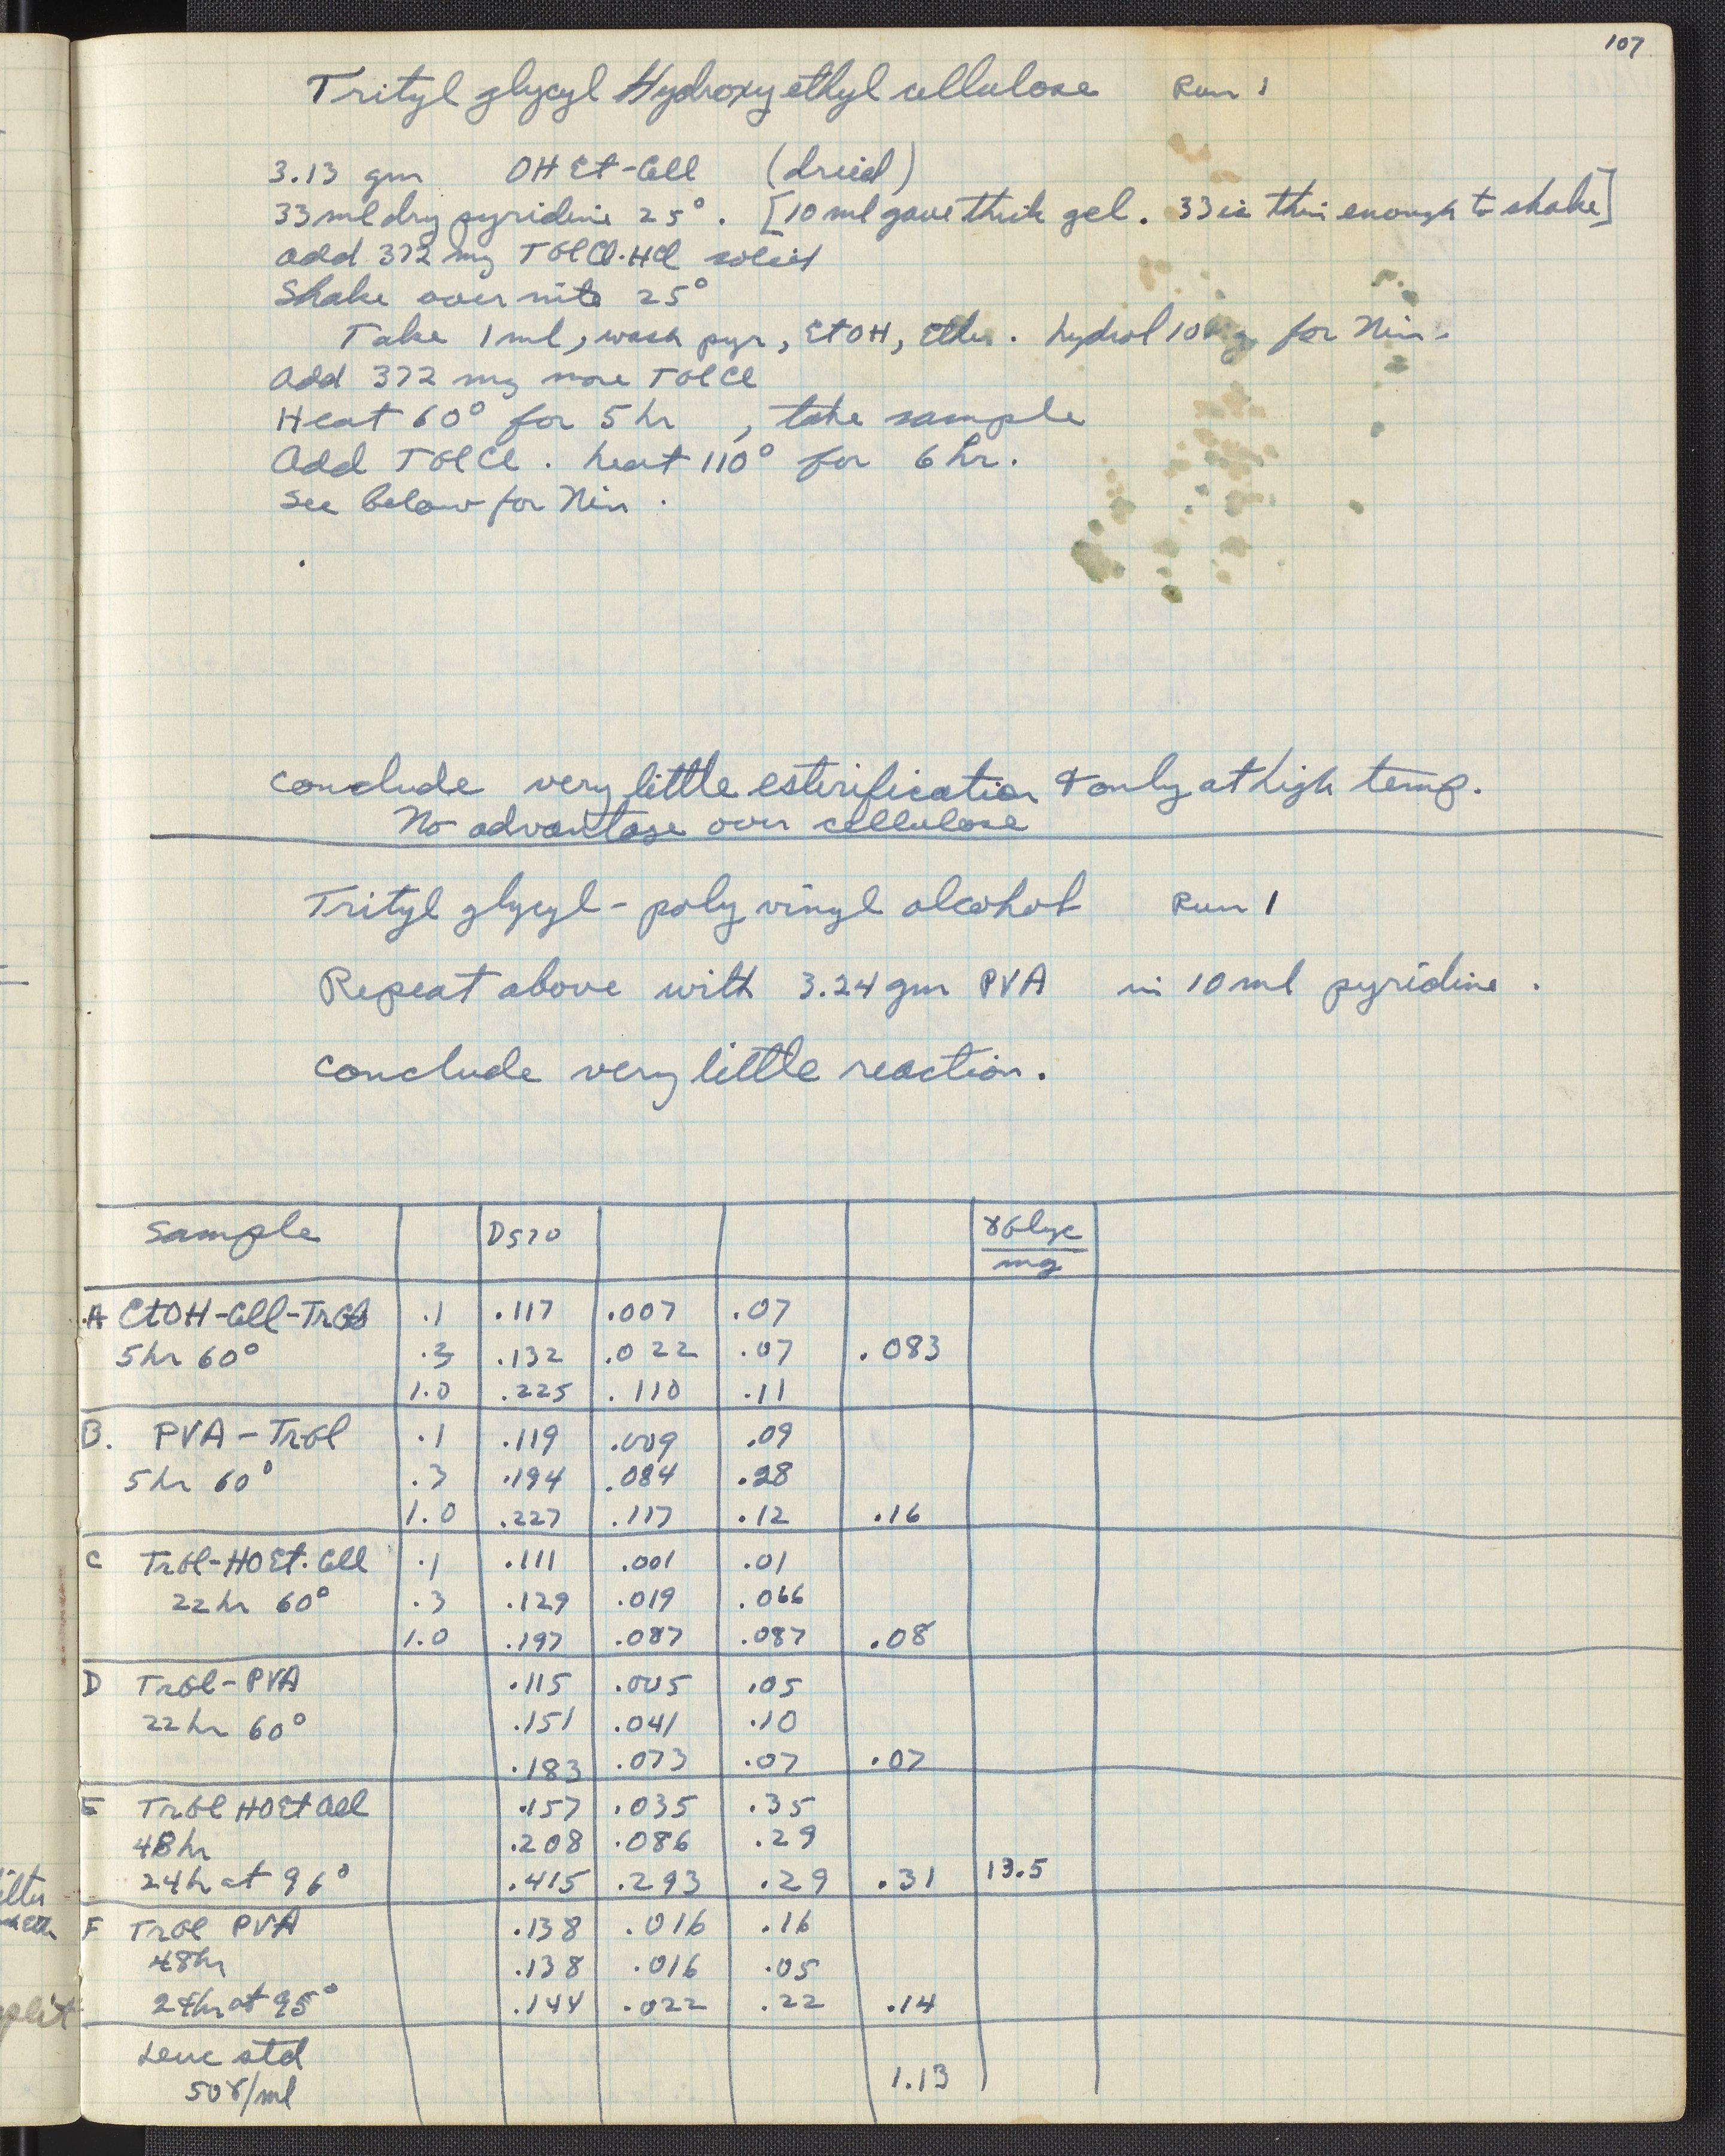 107
Trityl glycyl Hydroxyethyl cellulose Run 1
3.13 gm OH Et-Cell (dried)
33 ml dry pyridine 25°. [10 ml gave thick gel. 33 is thin enough to shake]
add 372 mg TGlCl·HCl solid
Shake over nite 25°
Take 1 ml, wash pyr, EtOH, Ether. hydrol 10 mg for Nin.
Add 372 mg more TGlCl
Heat 60° for 5 hr , take sample
Add TGlCl. heat 110° for 6 hr.
see below for Nin.
conclude very little esterification & only at high temp.
No advantage over cellulose
Trityl glycyl - poly vinyl alcohol Run 1
Repeat above with 3.24 gm PVA in 10 ml pyridine.
conclude very little reaction.
Sample D570 γGlyc/mg
A EtOH-Cell-TrGl .1 .117 .007 .07
5 hr 60° .3 .132 .022 .07 .083
1.0 .225 .110 .11
B. PVA-TrGl .1 .119 .009 .09
5 hr 60° .3 .194 .084 .28
1.0 .227 .117 .12 .16
C TrGl-HOEt.Cell .1 .111 .001 .01
22 hr 60° .3 .129 .019 .066
1.0 .197 .087 .087 .08
D TrGl-PVA .115 .005 .05
22 hr 60° .151 .041 .10
.183 .073 .07 .07
E TrGl HOEt Cell .157 .035 .35
48 hr .208 .086 .29
24 h at 96° .415 .293 .29 .31 13.5
F TrGl PVA .138 .016 .16
48 hr .138 .016 .05
24 hr at 95° .144 .022 .22 .14
Leuc std
50γ/ml 1.13